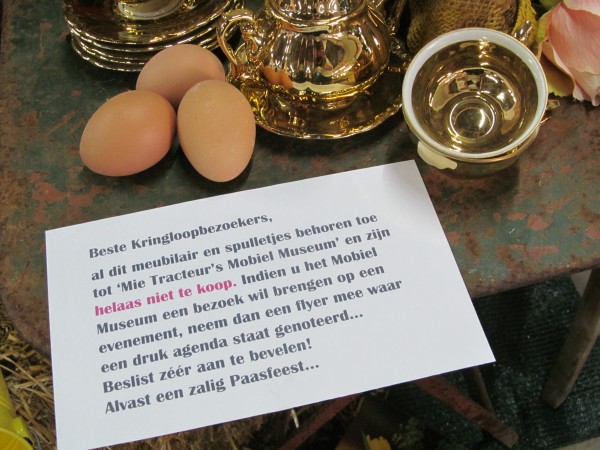 Beste Kringloopbezoekers,
al dit meubilair en spulletjes behoren toe
tot ‘Mie Tracteur's Mobiel Museum' en zijn
helaas niet te koop. Indien u het Mobiel
Museum een bezoek wil brengen op een
evenement, neem dan een flyer mee waar
een druk agenda staat genoteerd...
Beslist zéér aan te bevelen!
Alvast een zalig Paasfeest...